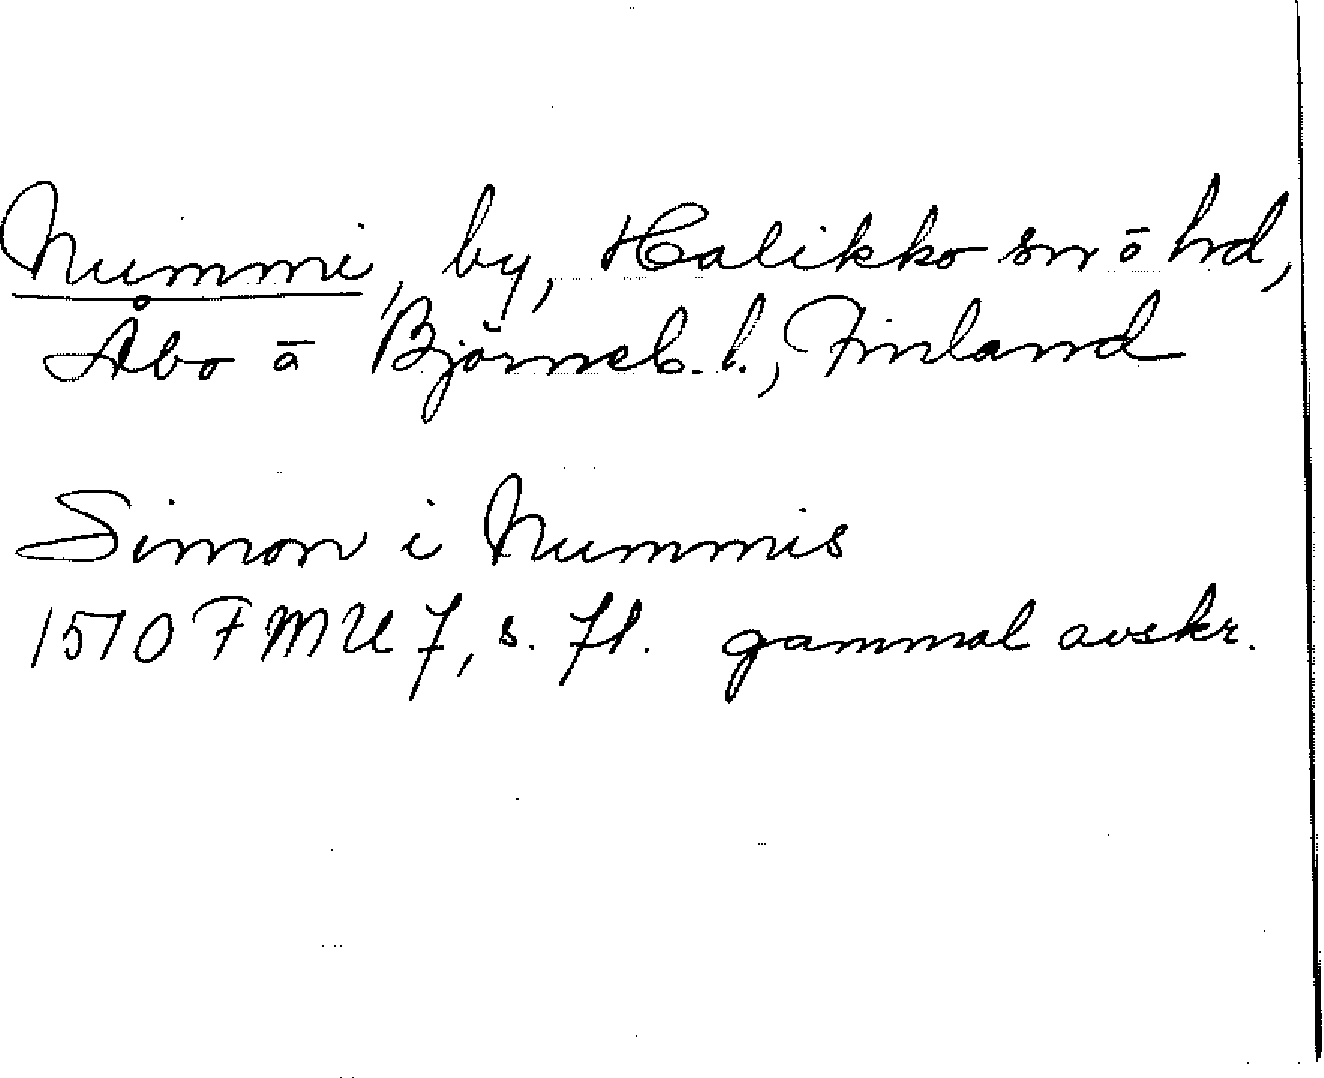 Nummi, by, Halikko sn o hd,
Åbo o Björneb. l., Finland
Simon i Nummis
1510 FMU 7, s. 71. gammal avskr.